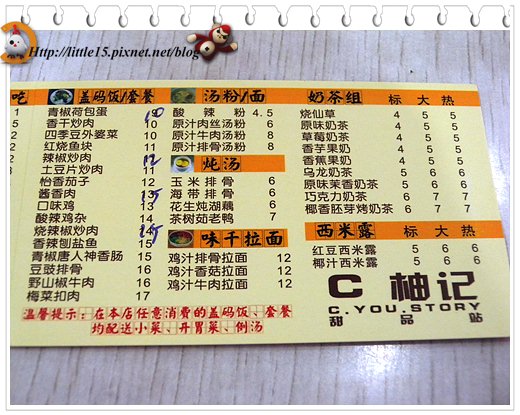 Http://little15.pixnet.net/blog
吃 盖码饭/套餐
青椒荷包蛋
香干炒肉 10
四季豆外婆菜 10
红烧鱼块 11
辣椒炒肉 12
土豆片炒肉
怡香茄子 12
酱香肉 13
口味鸡 13
酸辣鸡杂 14
烧辣椒炒肉
香辣刨盐鱼 15
青椒唐人神香肠 15
豆豉排骨 16
野山椒牛肉 16
梅菜扣肉 17
汤粉/面
酸辣粉 4.5
原汁肉丝汤粉 6
原汁牛肉汤粉 8
原汁排骨汤粉 8
炖汤
玉米排骨 6
海带排骨 6
花生炖湖藕 6
茶树菇老鸭 7
味千拉面
鸡汁排骨拉面 12
鸡汁香菇拉面 12
鸡汁牛肉拉面 12
奶茶组 标 大 热
烧仙草 4 5 5
原味奶茶 4 5 5
草莓奶茶 4 5 5
香芋果奶 4 5 5
香蕉果奶 4 5 5
乌龙奶茶 5 6 6
原味茉香奶茶 5 6 6
巧克力奶茶 6 7 7
椰香胚芽烤奶茶 6 7 7
西米露 标 大 热
红豆西米露 5 6 6
椰汁西米露 5 6 6
C 柚记
C.YOU.STORY
甜品站
温馨提示：在本店任意消费的盖码饭、套餐
均配送小菜、开胃菜、例汤